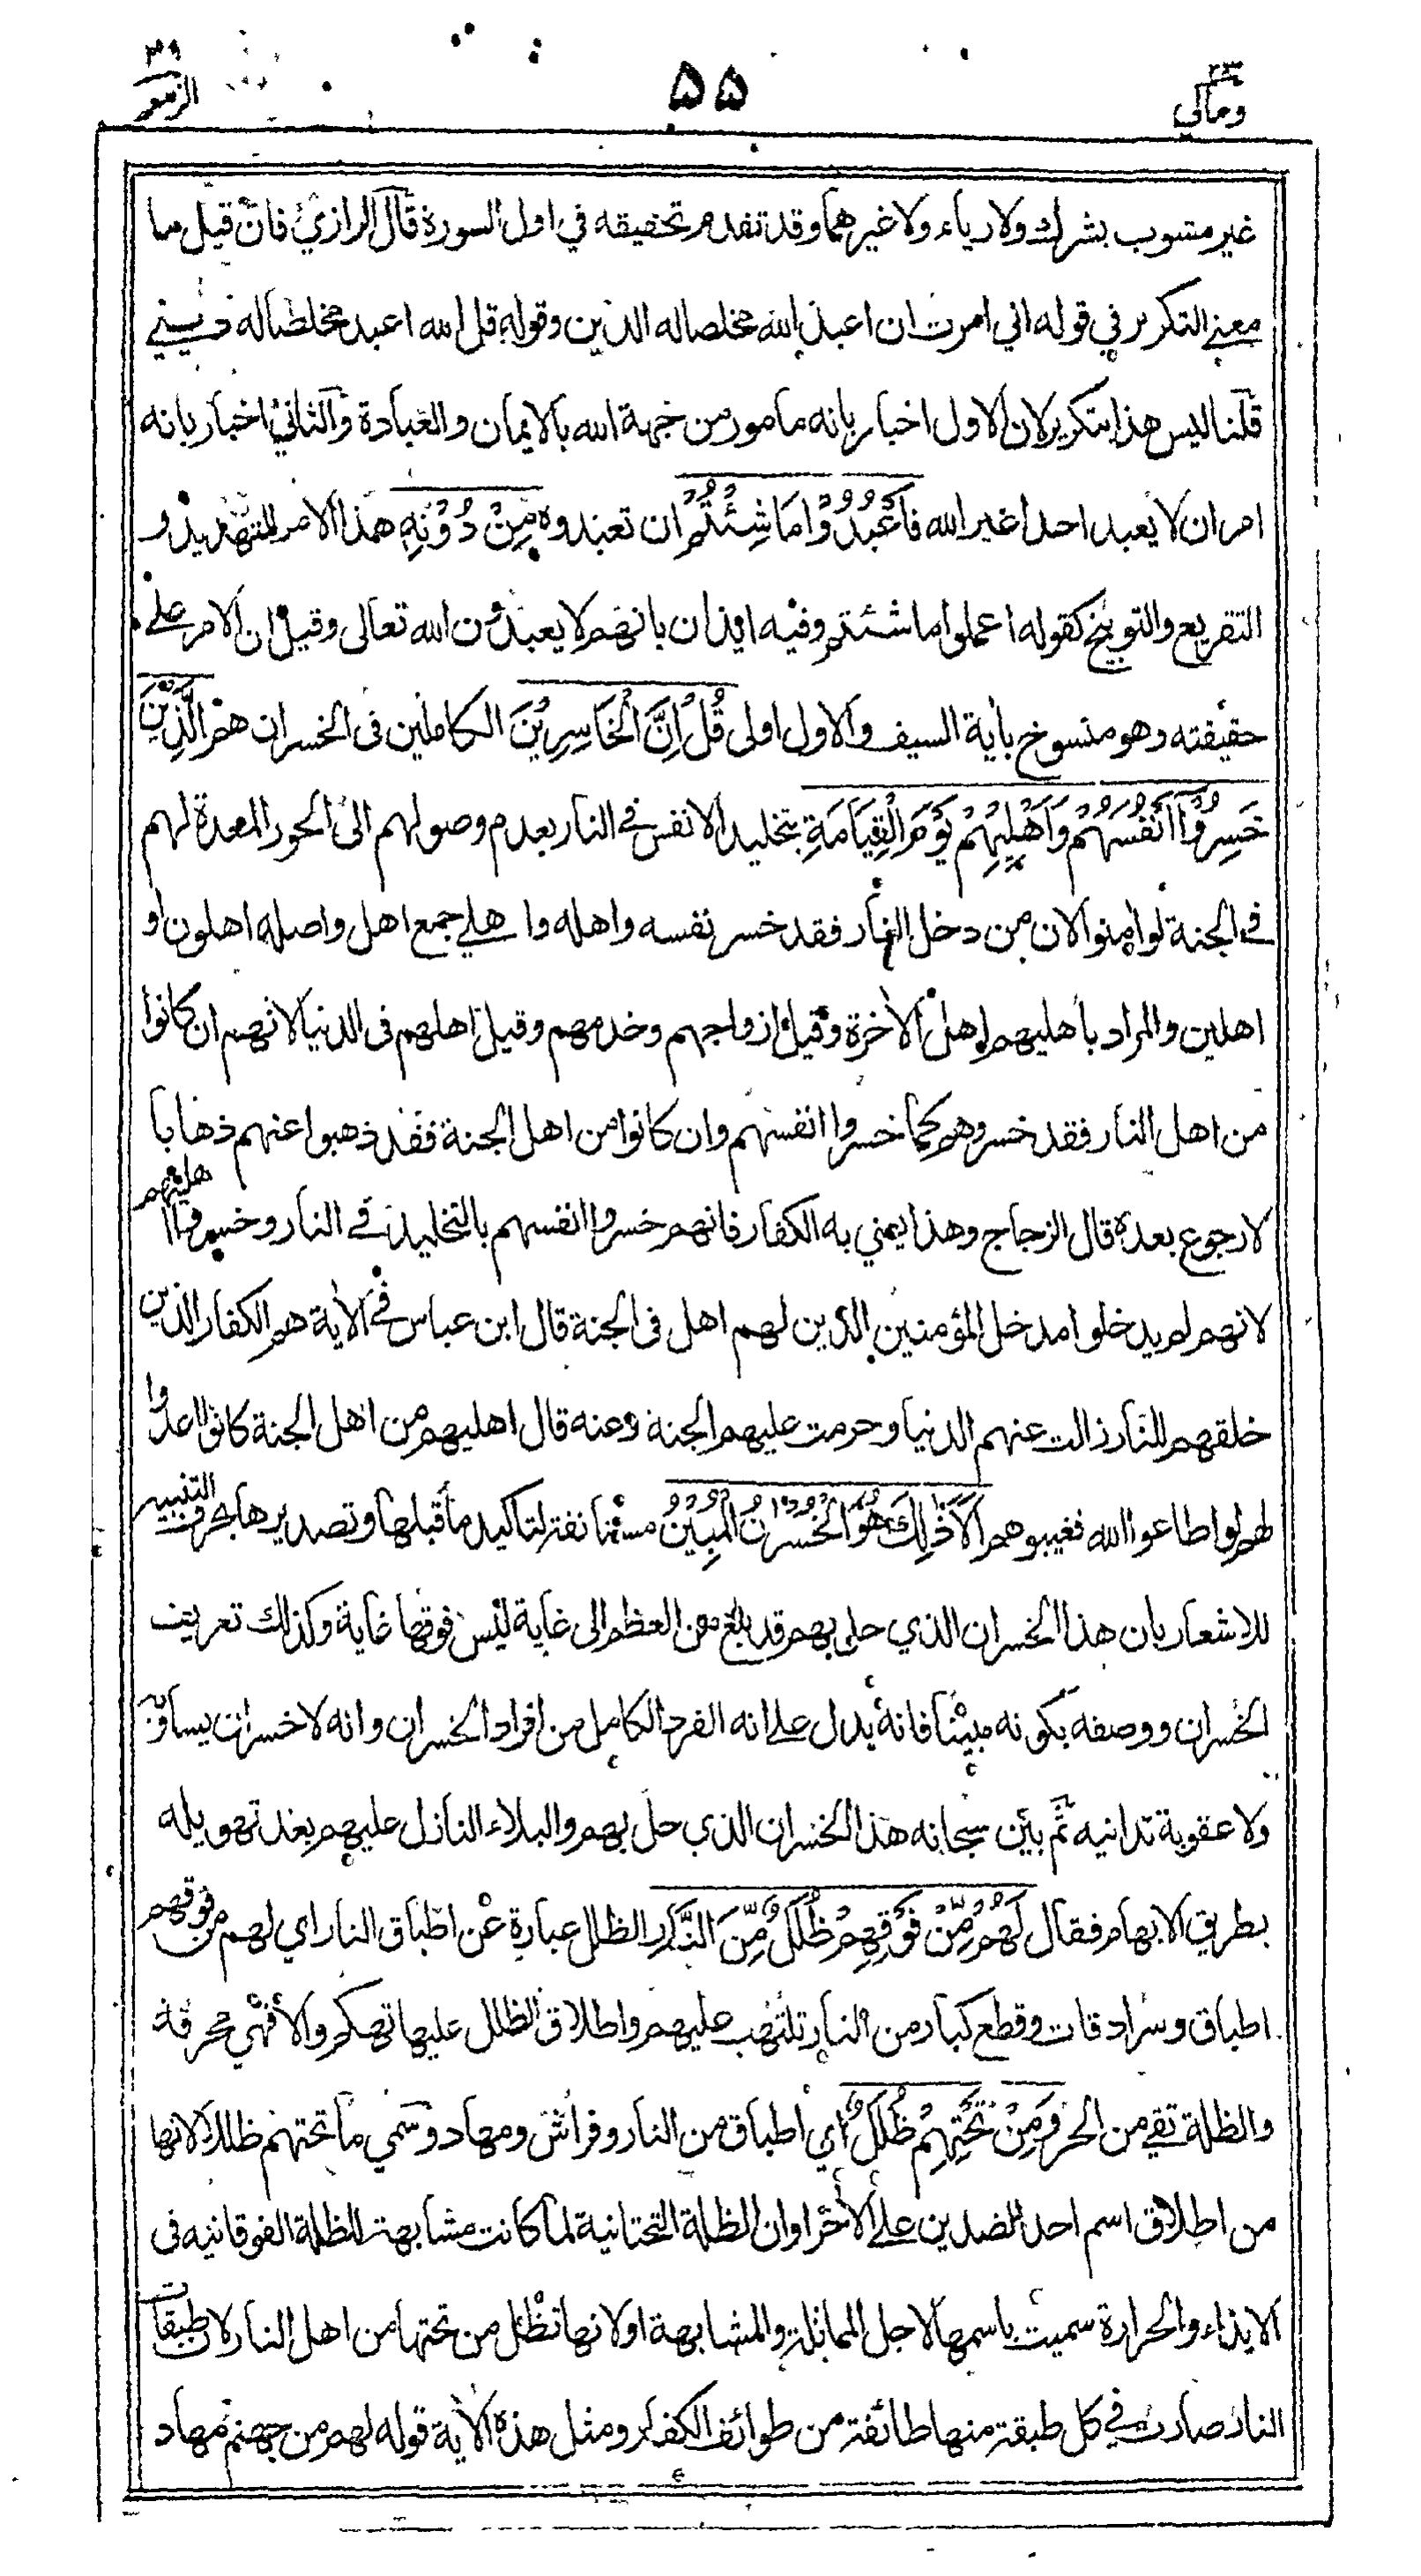 ٣٩
الزمر
٥٥
٢٣
ومالي
غير مشوب بشرك ولا رياء ولا غيرهما وقد تقدم تحقيقه في اول السورة قال الرازي فان قيل ما
معنى التكرير في قوله اني امرت ان اعبد الله مخلصا له الدين وقوله قل الله اعبد مخلصا له ديني
قلنا ليس هذا بتكرير لان الاول اخبار بانه مامور من جهة الله بالايمان والعبادة والثاني اخبار بانه
امر ان لا يعبد احدا غير الله فَاعْبُدُوْا مَا شِئْتُمْ ان تعبدوه مِنْ دُوْنِهِ هذا الامر للتهديد و
التقريع والتوبيخ كقوله اعملوا ما شئتم وفيه ايذان بانهم لا يعبدون الله تعالى وقيل ان الامر على
حقيقته وهو منسوخ بأية السيف والاول اولى قُلْ اِنَّ الْخَاسِرِيْنَ الكاملين فى الخسران هم الَّذِيْنَ
خَسِرُوْا اَنْفُسَهُمْ وَاَهْلِيْهِمْ يَوْمَ الْقِيَامَةِ بتخليد الانفس في النار بعدم وصولهم الى الحور المعدة لهم
في الجنة لو امنوا لان من دخل النار فقد خسر نفسه واهله واهلي جمع اهل واصله اهلون او
اهلين والمراد بأهليهم اهل الاخرة وقيل ازواجهم وخدمهم وقيل اهلهم فى الدنيا لانهم ان كانوا
من اهل النار فقد خسروهم كما خسروا انفسهم وان كانوا من اهل الجنة فقد ذهبوا عنهم ذهابا
لا رجوع بعده قال الزجاج وهذا يعني به الكفار فانهم خسروا انفسهم بالتخليد في النار وخسروا اهليهم
لانهم لم يدخلوا مدخل المؤمنين الذين لهم اهل فى الجنة قال ابن عباس في الأية هم الكفار الذين
خلقهم للنار زالت عنهم الدنيا وحرمت عليهم الجنة وعنه قال اهليهم من اهل الجنة كانوا اعدوا
لهم لو اطاعوا الله فغيبوهم اَلَا ذٰلِكَ هُوَ الْخُسْرَانُ الْمُبِيْنُ مستأنفة لتاكيد ما قبلها وتصديرها بحرف التنبيه
للاشعار بان هذا الخسران الذي حل بهم قد بلغ من العظم الى غاية ليس فوقها غاية وكذلك تعريف
الخسران ووصفه بكونه مبينا فانه يدل على انه الفرد الكامل من افراد الخسران وانه لا خسران يساويه
ولا عقوبة تدانيه ثم بين سبحانه هذا الخسران الذي حل بهم والبلاء النازل عليهم بعد تهويله
بطريق الابهام فقال لَهُمْ مِّنْ فَوْقِهِمْ ظُلَلٌ مِّنَ النَّارِ الظلل عبارة عن اطباق النار اي لهم من فوقهم
اطباق وسرادقات وقطع كبار من النار تلتهب عليهم واطلاق الظلل عليها تهكم والا فهي محرقة
والظلة تقي من الحر وَمِنْ تَحْتِهِمْ ظُلَلٌ اي اطباق من النار وفراش ومهاد وسمي ما تحتهم ظللا لانها
من اطلاق اسم احد الضدين على الأخر او ان الظلة التحتانية لما كانت مشابهة للظلة الفوقانيه فى
الايذاء والحرارة سميت باسمها لاجل المماثلة والمشابهة او لانها تظل من تحتها من اهل النار لان طبقات
النار صار في كل طبقة منها طائفة من طوائف الكفار ومثل هذه الأية قوله لهم من جهنم مهاد